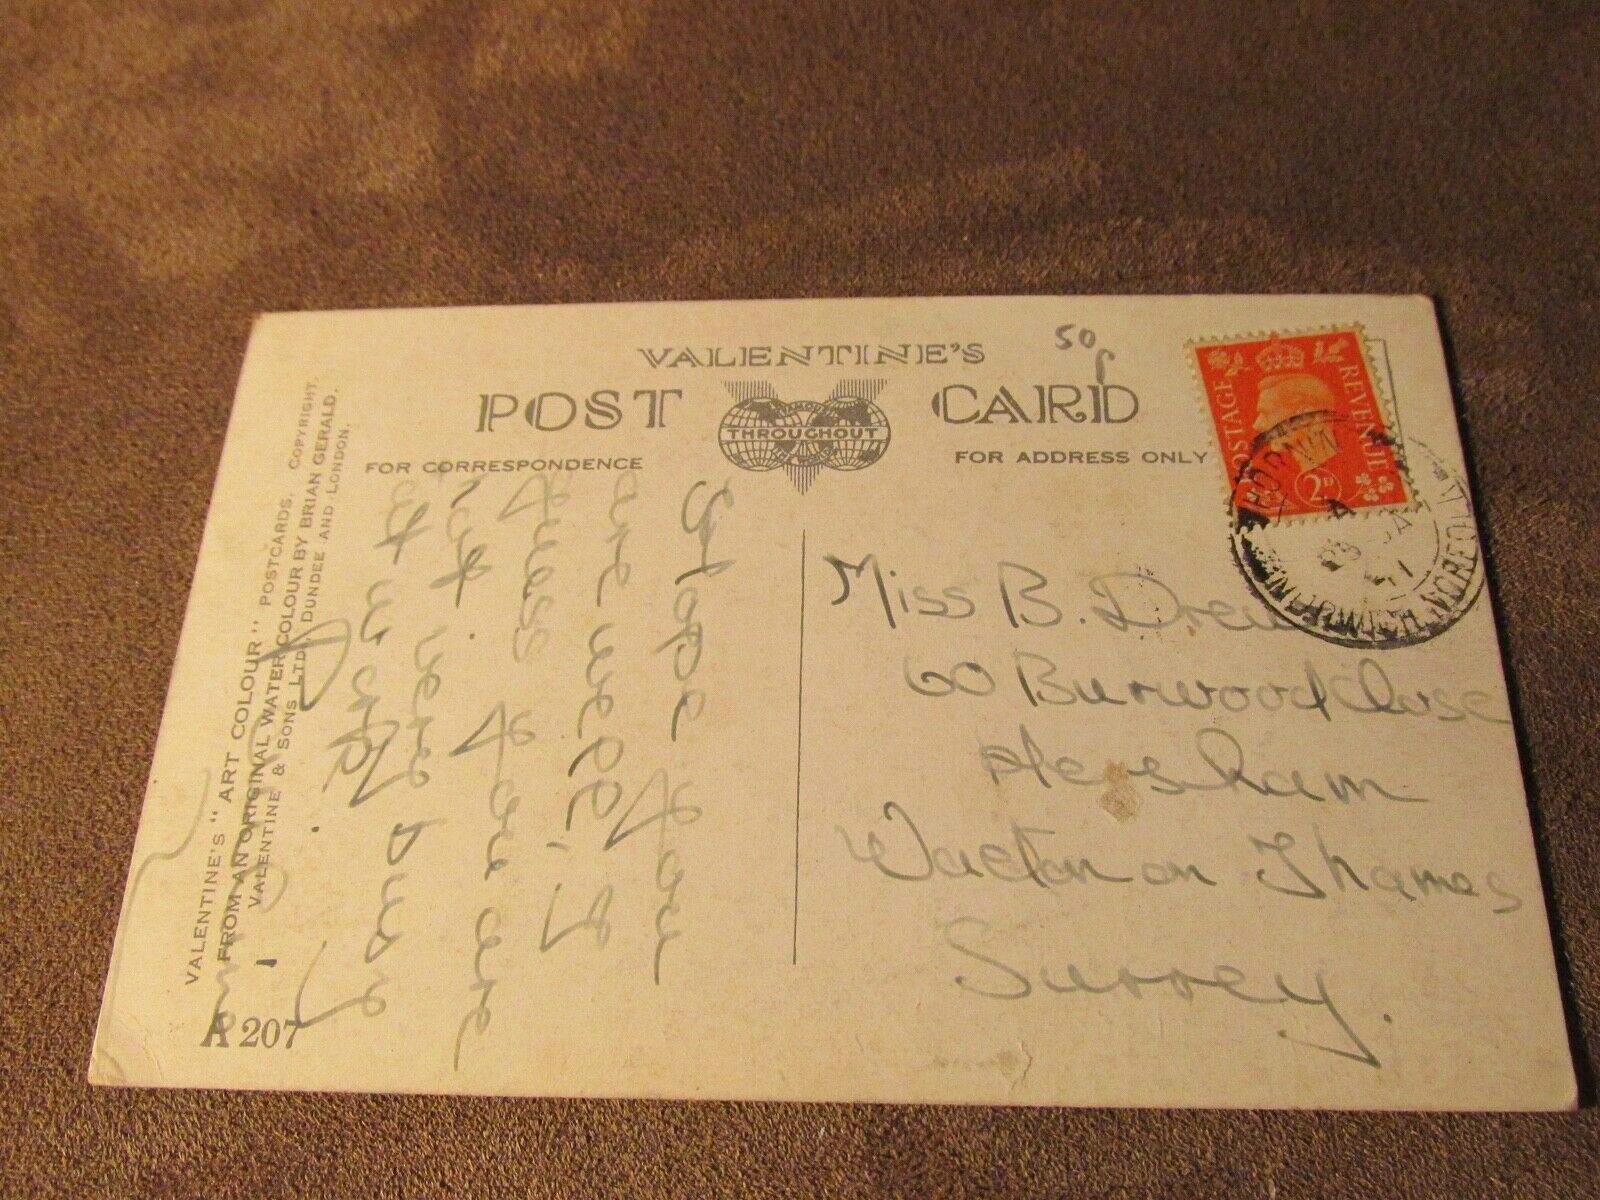 VALENTINE'S
50p
POST CARD
THROUGHOUT
FOR CORRESPONDENCE
FOR ADDRESS ONLY
POSTAGE REVENUE
2D
THORNW
A
JA
NORFOLK
Miss B. Drew
60 Burwood Close
Hersham
Walton on Thames
Surrey.
Hope you
are well, I
guess you are
not very busy
at work
VALENTINE'S "ART COLOUR" POSTCARDS. COPYRIGHT.
FROM AN ORIGINAL WATER COLOUR BY BRIAN GERALD.
VALENTINE & SONS LTD., DUNDEE AND LONDON.
A 207